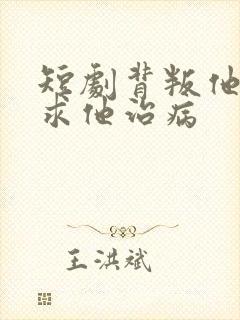 短劇背叛他
求他治病
王洪斌